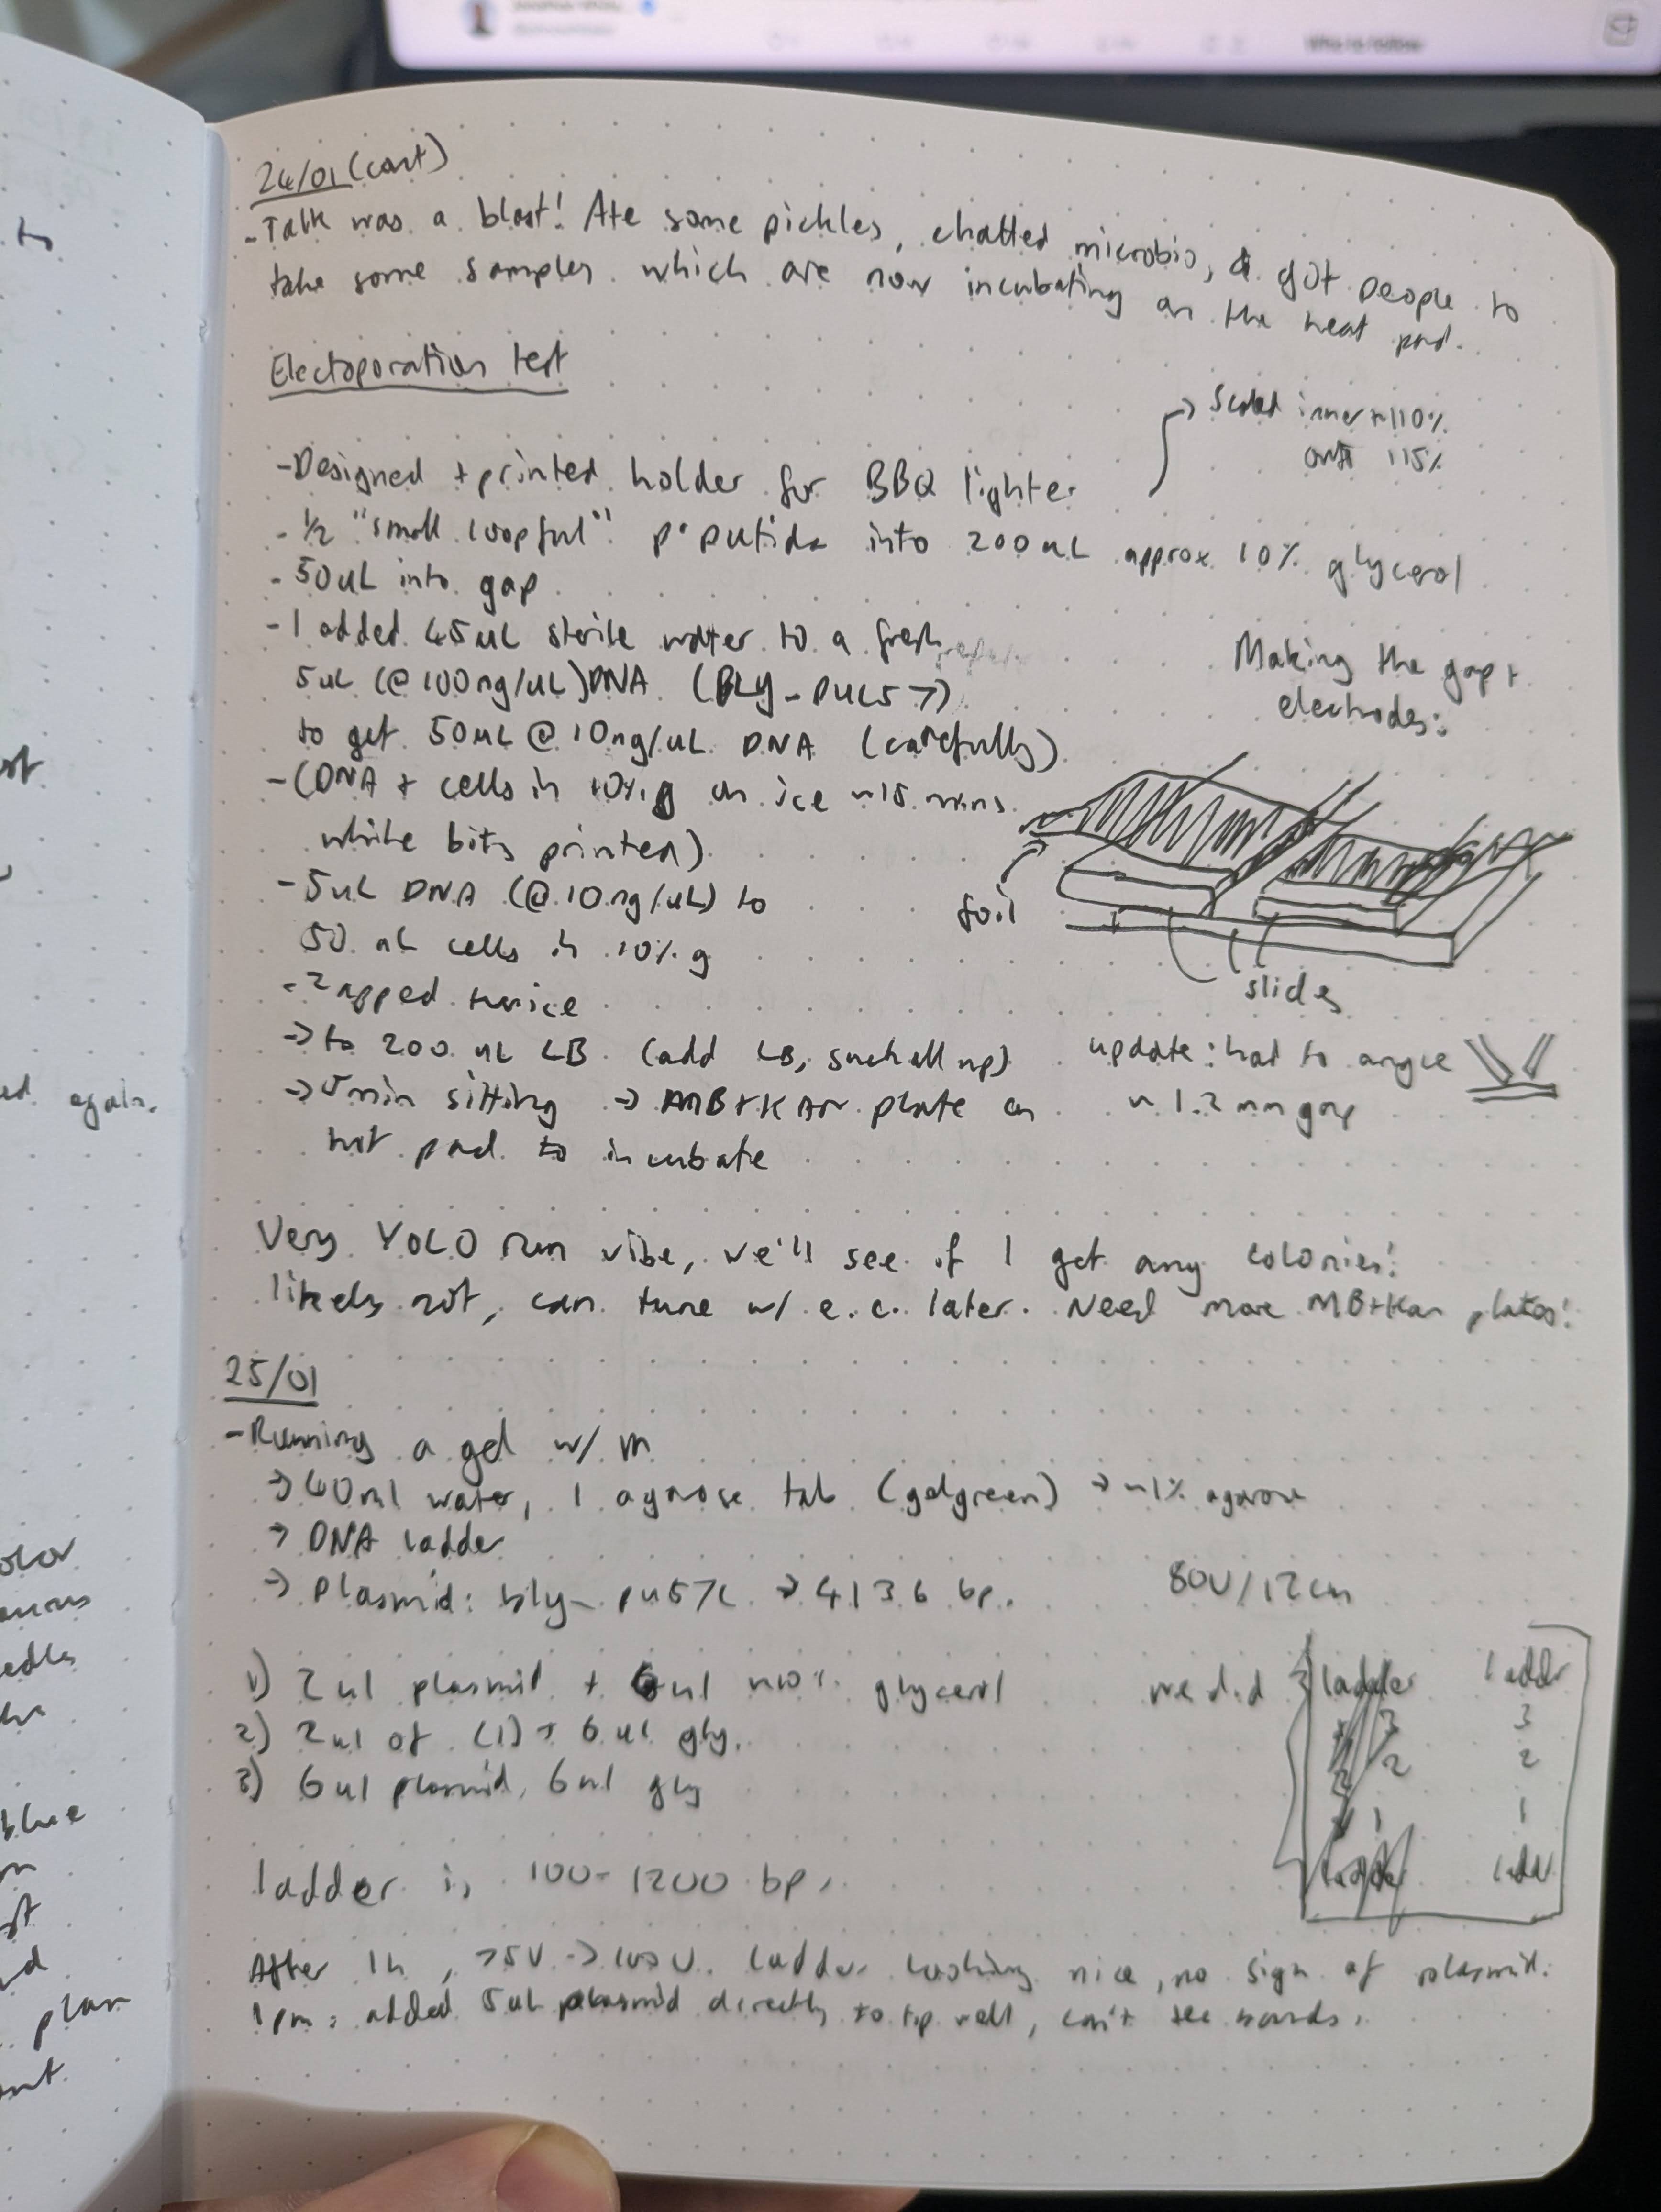 24/01 (cont)
- Talk was a blast! Ate some pickles, chatted microbio, & got people to
take some samples which are now incubating on the heat pad.
Electoporation test
→ Scaled inner → 110%
115%
- Designed + printed holder for BBQ lighter
- 1/2 "small loopful" p. putida into 200uL approx 10% glycerol
- 50uL into gap
- I added 45uL sterile water to a fresh
5uL (@ 100ng/uL) DNA (BLY-pUC57)
to get 50uL @ 10ng/uL DNA (carefully)
- (DNA + cells in 10% g on ice ~15 mins
while bits printed)
- 5uL DNA (@ 10ng/uL) to
50 uL cells in 10% g
- Zapped twice
→ to 200 uL LB (add LB, suck all up)
→ 5min sitting → MB+KAN plate on
hot pad to incubate
Making the gap +
electrodes:
foil
slides
update: had to angle
~ 1.2 mm gap
Very YOLO run vibe, we'll see if I get any colonies!
likely not, can tune w/ e.c. later. Need more MB+Kan plates!
25/01
- Running a gel w/ M
→ 40ml water, 1 agarose tab (gelgreen) → ~1% agarose
→ DNA ladder
→ Plasmid: bly- pu57c → 4136 bp.
80V/12cm
1) 2ul plasmid + 6ul ~10% glycerol
2) 2ul of (1) + 6ul gly.
3) 6ul plasmid, 6ul gly
we did
ladder ladder
3 3
2 2
1 1
ladder ladder
ladder is 100-1200 bp.
After 1h, 75V → 100V. Ladder looking nice, no sign of plasmid.
1pm: added 5uL plasmid directly to top well, can't see bands.
to
again.
blue
plan